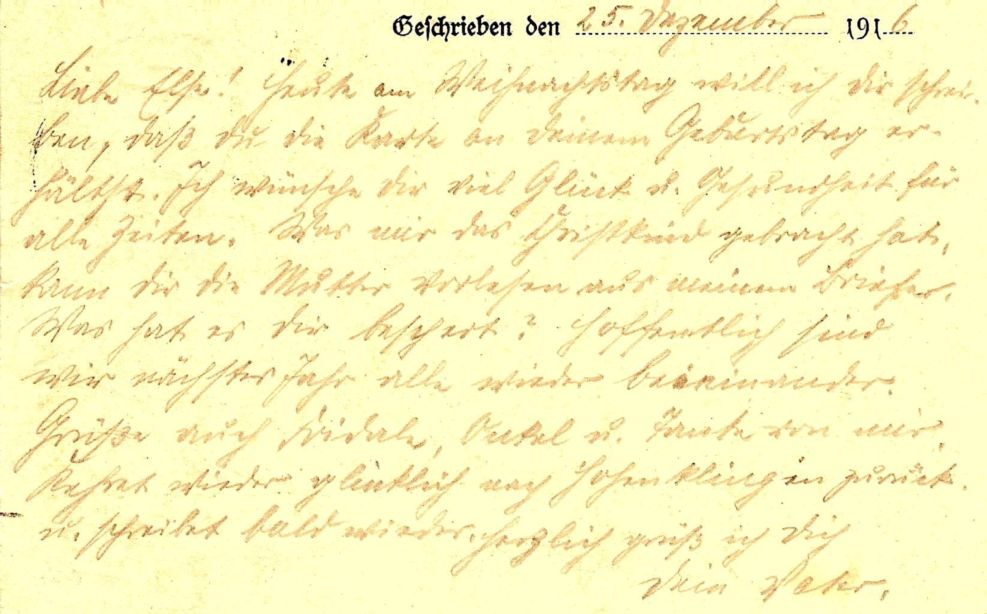 Geschrieben den 25. Dezember 1916
Liebe Else! Heute am Weihnachtstag will ich dir schrei-
ben, daß du die Karte an deinem Geburtstag er-
hältst. Ich wünsche dir viel Glück u. Gesundheit für
alle Zeiten. Was mir das Christkind gebracht hat,
kann dir die Mutter vorlesen aus meinem
Was hat es dir beschert? Hoffentlich sind
wir nächstes Jahr alle wieder beieinander.
Grüße auch Onkel u. Tante von mir,
Kehret wieder glücklich nach Hohenklingen zurück.
u. schreibet bald wieder. Herzlich grüß ich dich
Dein Vater.